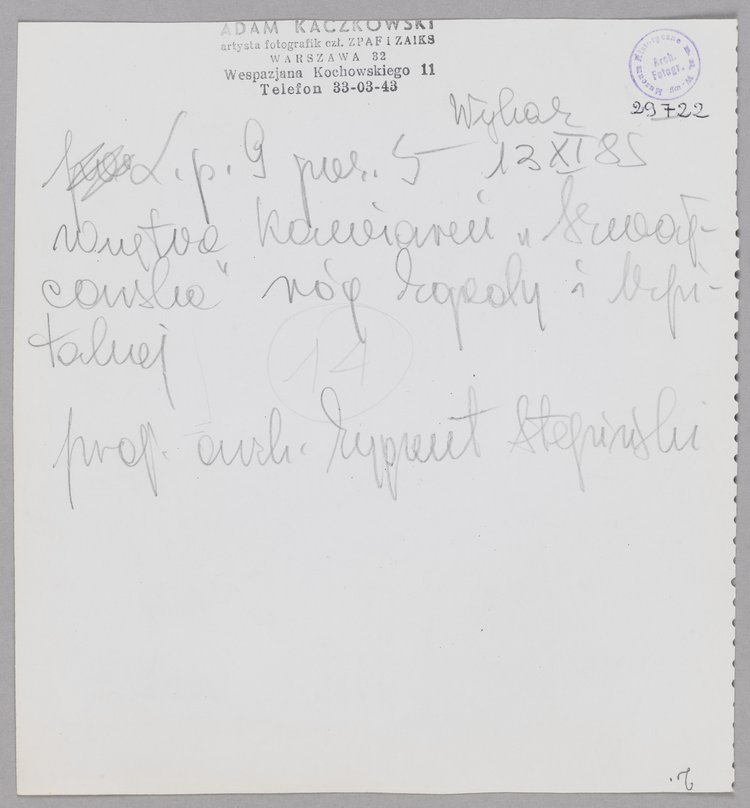 ADAM KACZKOWSKI
artysta fotografik czł. ZPAF i ZAIKS
WARSZAWA 32
Wespazjana Kochowskiego 11
Telefon 33-03-43
Arch.
Fotogr.
29722
L.p. 9 poz. 5 13 XI 85
wnętrze kawiarni „Szwaj-
carska" róg Zgody i Szpi-
talnej
14
proj. arch. Zygmunt Stępiński